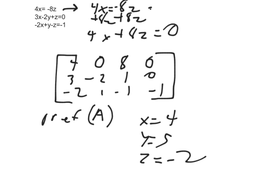 4x= -8z → 4x=-8z
3x-2y+z=0
-2x+y-z=-1
+8z +8z
4x+8z=0
4 0 8 0
3 -2 1 0
-2 1 -1 -1
rref(A)
x=4
y=5
z=-2